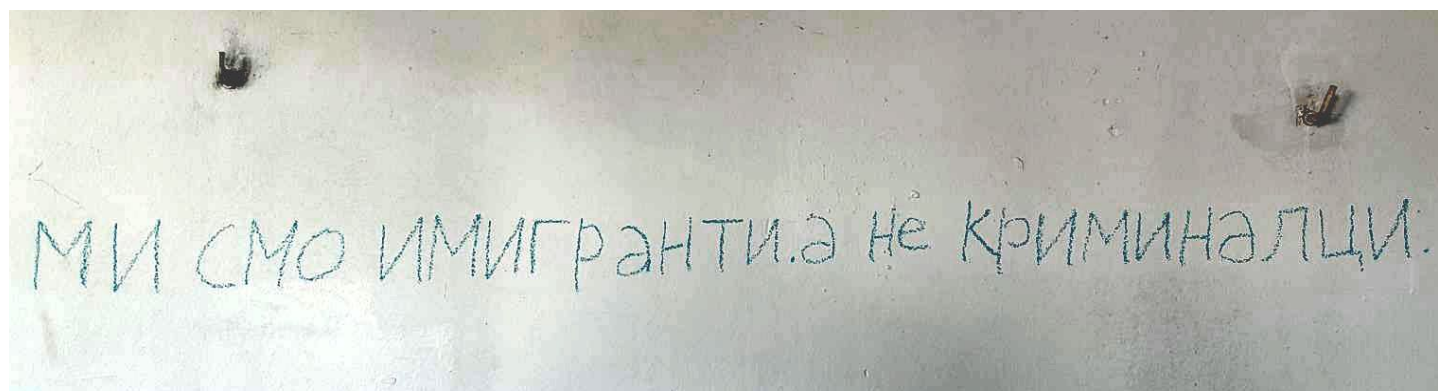 ми смо имигранти.а не криминалци.